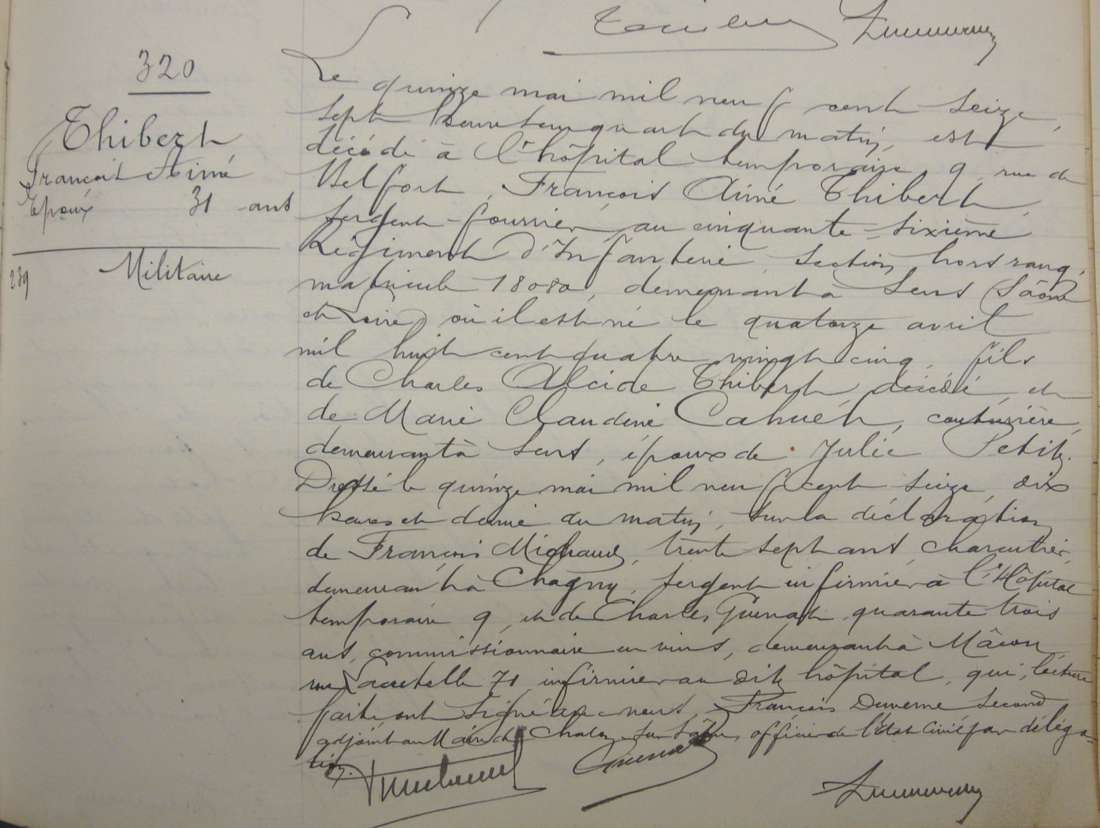 320
Thibert
François Aimé
Epoux 31 ans
289
Militaire
Le quinze mai mil neuf cent seize,
sept heures un quart du matin, est
décédé à l'hôpital temporaire 9, rue de
Belfort, François Aimé Thibert,
sergent-fourrier au cinquante-sixième
Régiment d'Infanterie, section hors rang,
matricule 18080, demeurant à Sens (Saône
et Loire) où il est né le quatorze avril
mil huit cent quatre vingt cinq, fils
de Charles Alcide Thibert, décédé, et
de Marie Claudine Cahuet, couturière,
demeurant à Sens, époux de Julie Petit.
Dressé le quinze mai mil neuf cent seize, dix
heures et demie du matin, sur la déclaration
de François Michaud, trente sept ans, charcutier
demeurant à Chagny, sergent infirmier à l'Hôpital
temporaire 9, et de Charles Guenot, quarante trois
ans, commissionnaire en vins, demeurant à Mâcon,
rue 71, infirmier au dit hôpital, qui, lecture
faite ont signé avec nous, François Duverne second
adjoint au Maire de Chalon-sur-Saône, officier de l'état civil par déléga-
tion.